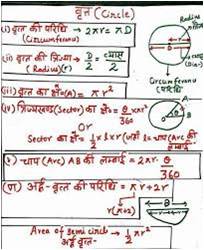 वृत्त (Circle)
(i) वृत्त की परिधि → 2πr = πD
(Circumference)
(ii) वृत्त की त्रिज्या → D/2 = व्यास/2
(Radius)(r)
(iii) वृत्त का क्षे०(A) = πr²
(iv) त्रिज्यखण्ड(Sector) का क्षे० = θ/360 × πr²
Or
Sector का क्षे० = 1/2 l×r (जहाँ l = चाप(Arc) की लम्बाई)
(v) चाप (Arc) AB की लम्बाई = 2πr · θ/360
(vi) अर्द्ध-वृत्त की परिधि = πr + 2r
r(π+2)
Area of semi circle → 1/2 πr²
अर्द्ध वृत्त-
Radius
Circumference
परिधि
A
B
θ
r